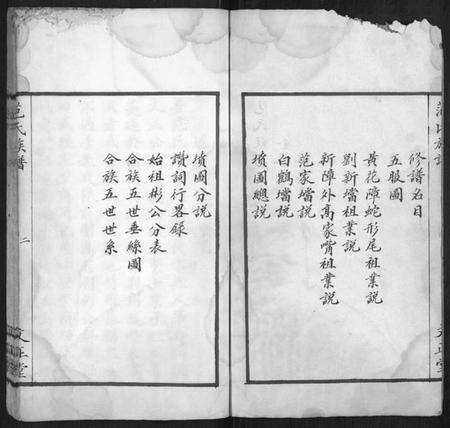 修譜名目
五服圖
黃花障蛇形尾祖業說
劉新壋祖業說
新障外高家嘴祖業說
范家壋說
白鶴壋說
墳圖總說
墳圖分說
讚詞行畧錄
始祖彬公分表
合族五世垂絲圖
合族五世世系
范氏族譜
二
文正堂